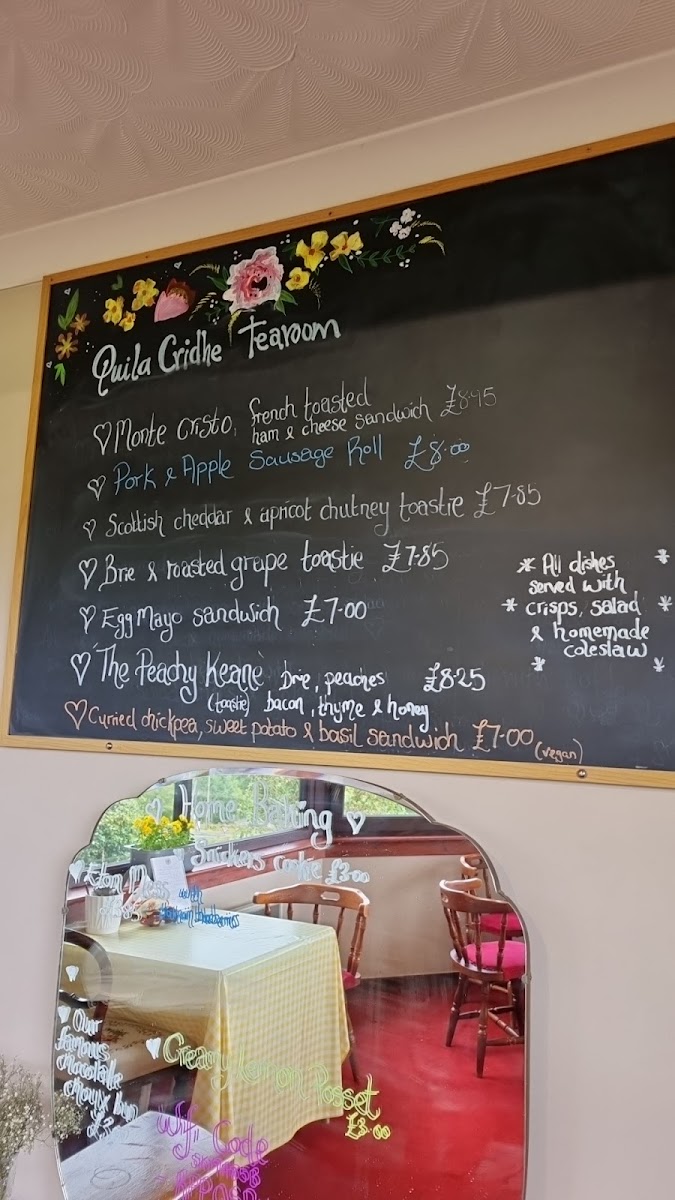 Quila Cridhe Tearoom
Monte Cristo, French toasted
ham & cheese sandwich £8.95
Pork & Apple Sausage Roll £8.00
Scottish cheddar & apricot chutney toastie £7.85
Brie & roasted grape toastie £7.85
Egg Mayo sandwich £7.00
'The Peachy Keane' brie, peaches £8.25
(toastie) bacon, thyme & honey
Curried chickpea, sweet potato & basil sandwich £7.00 (vegan)
* All dishes *
served with
* crisps, salad *
& homemade
* coleslaw *
Home Baking
Snickers cookie £3.00
Eton Mess
with
Our
famous
chocolate
choux bun
Creamy Lemon Posset
£3.00
Wifi Code